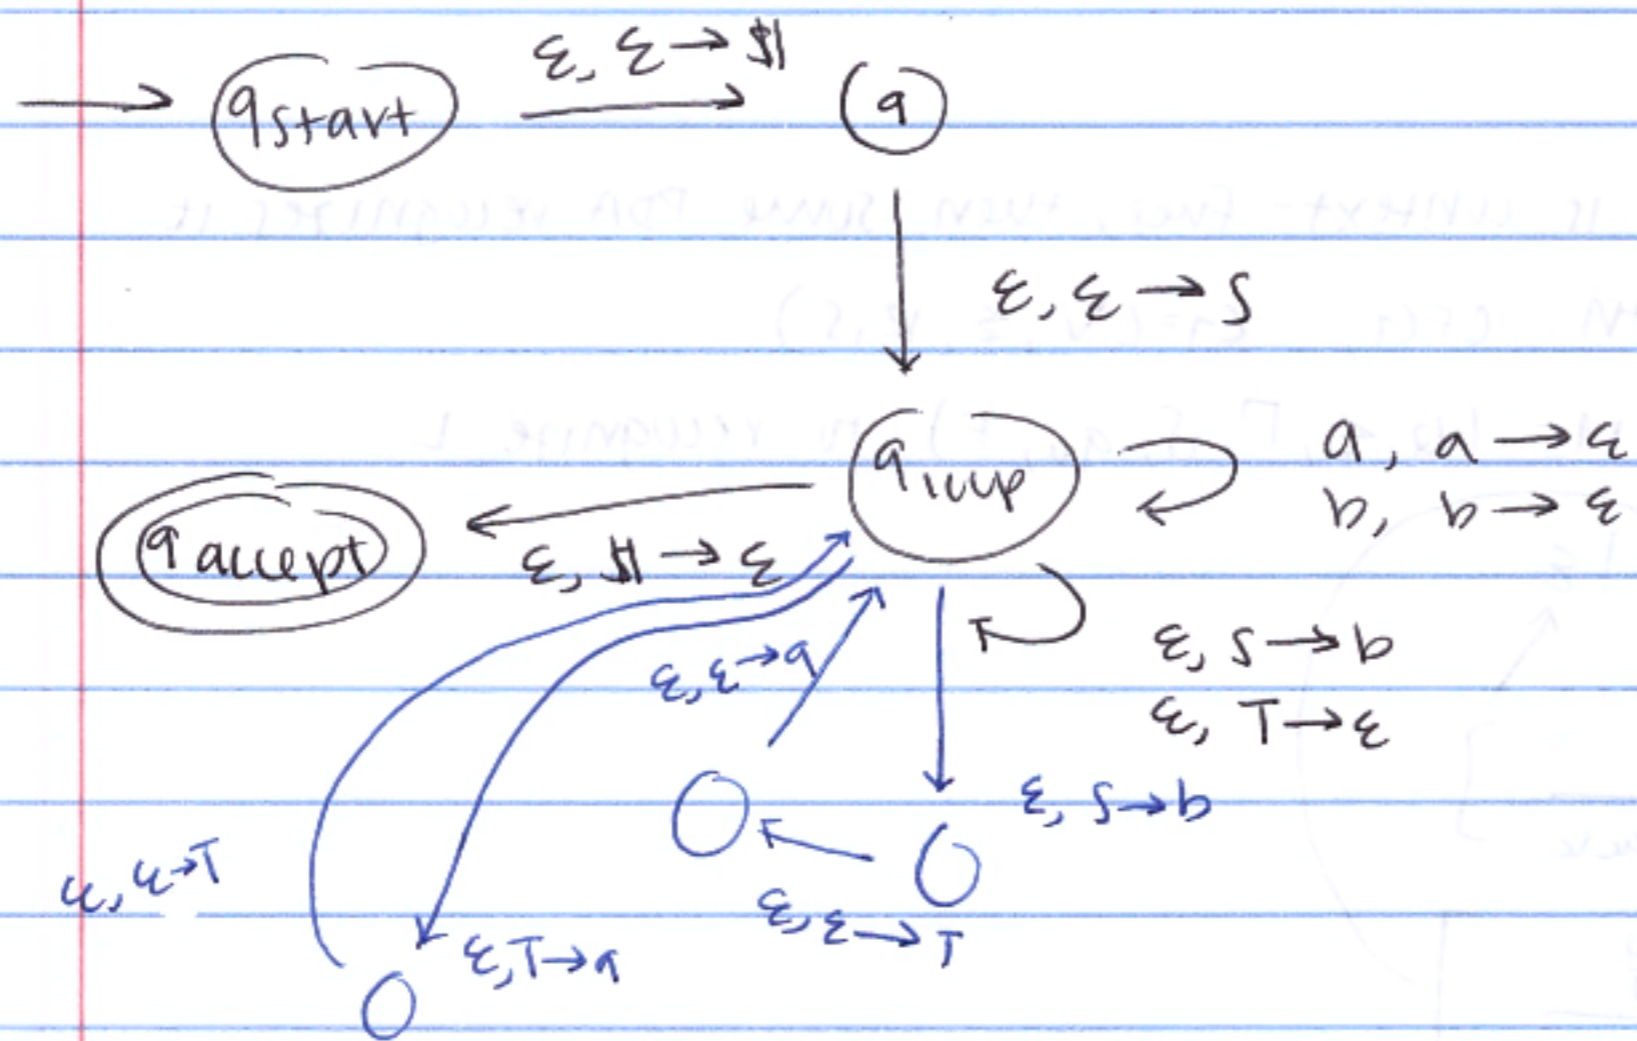 ε, ε → $
qstart
q
ε, ε → S
qloop
a, a → ε
b, b → ε
qaccept
ε, $ → ε
ε, S → b
ε, T → ε
ε, ε → a
ε, S → b
ε, ε → T
ε, ε → T
ε, T → a